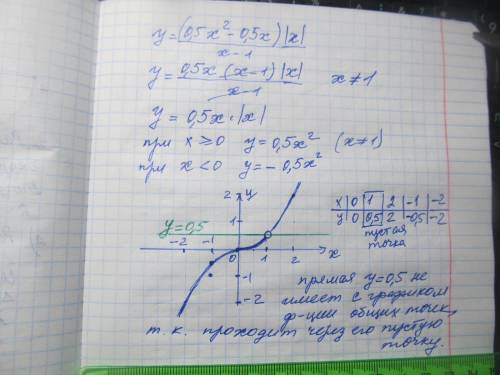 y = (0,5x² - 0,5x) |x|
x - 1
y = 0,5x (x - 1) |x|
x - 1
x ≠ 1
y = 0,5x · |x|
при x ≥ 0 y = 0,5x² (x ≠ 1)
при x < 0 y = - 0,5x²
2 y
1
y = 0,5
-2 -1 0 1 2 x
-1
-2
x 0 1 2 -1 -2
y 0 0,5 2 -0,5 -2
пустая
точка
прямая y = 0,5 не
имеет с графиком
ф-ции общих точек,
т.к. проходит через его пустую
точку.